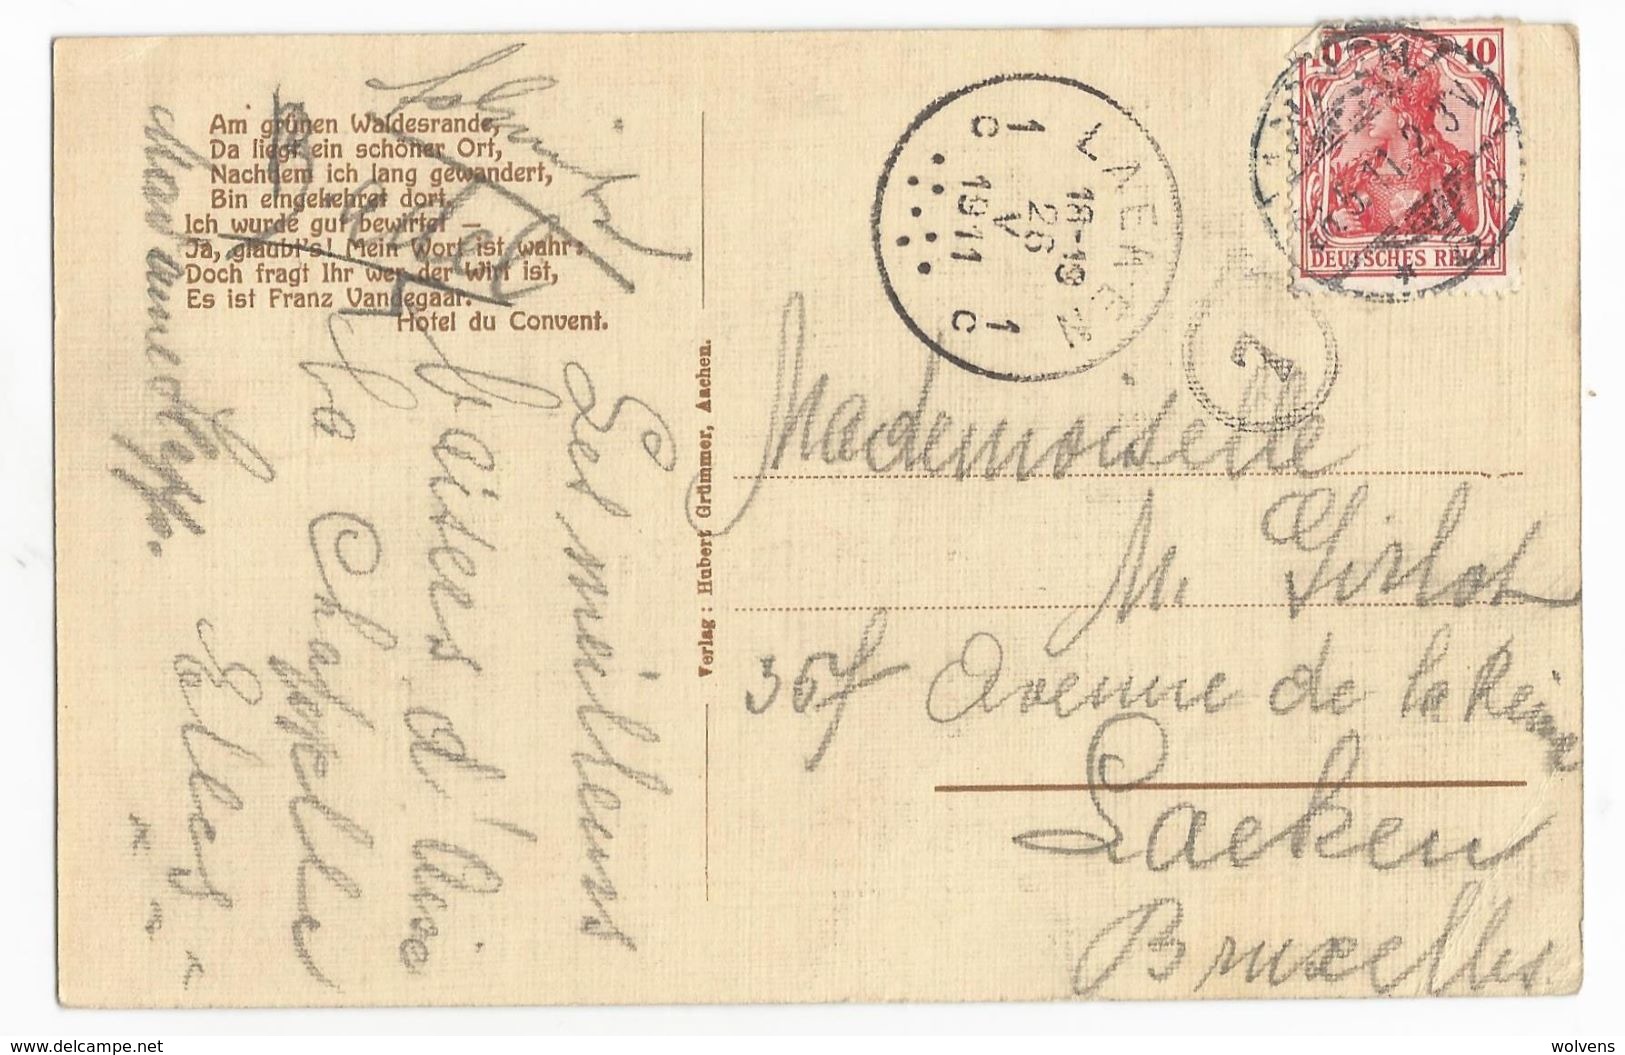 Am grünen Waldesrande,
Da liegt ein schöner Ort,
Nachdem ich lang gewandert,
Bin eingekehret dort,
Ich wurde gut bewirtet –
Ja, glaubt's! Mein Wort ist wahr:
Doch fragt Ihr wer der Wirt ist,
Es ist Franz Vandegaar.
Hotel du Convent.
Les meilleurs
baises d'Aixe
La Chapelle
Verlag: Hubert Grümmer, Aachen.
10 10
DEUTSCHES REICH
LAEKEN
1 c 1 c
18-19
26
V
1911
7
Mademoiselle
M. Girlot
Avenue de la Reine
Laeken
Bruxelles
www.delcampe.net
wolvens